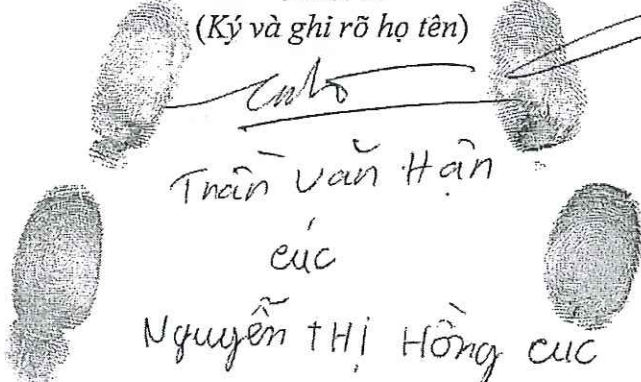 (Ký và ghi rõ họ tên)
Trần Văn Hận
cúc
Nguyễn THỊ Hồng cuc